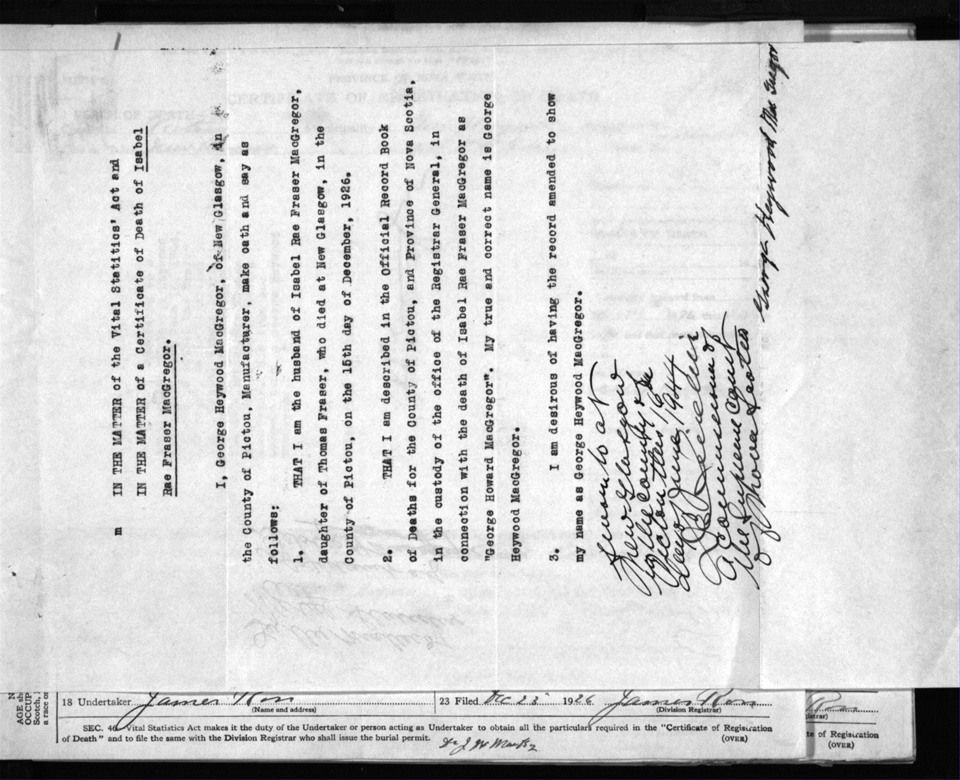 m IN THE MATTER of the Vital Statitics' Act and
IN THE MATTER of a Certificate of Death of Isabel
Rae Fraser MacGregor.
I, George Heywood MacGregor, of New Glasgow, in
the County of Pictou, Manufacturer, make oath and say as
follows:
1. THAT I am the husband of Isabel Rae Fraser MacGregor,
daughter of Thomas Fraser, who died at New Glasgow, in the
County of Pictou, on the 15th day of December, 1926.
2. THAT I am described in the Official Record Book
of Deaths for the County of Pictou, and Province of Nova Scotia,
in the custody of the office of the Registrar General, in
connection with the death of Isabel Rae Fraser MacGregor as
"George Howard MacGregor". My true and correct name is George
Heywood MacGregor.
3. I am desirous of having the record amended to show
my name as George Heywood MacGregor.
Sworn to at
New Glasgow
in the County of
Pictou this 16
day of June 1944
A Commissioner of
the Supreme Court
of Nova Scotia
George Heywood MacGregor
AGE sh
OCCUP
Scotch,
a race or
18 Undertaker James
(Name and address)
23 Filed Dec 23 1926 James
(Division Registrar)
SEC. 40 Vital Statistics Act makes it the duty of the Undertaker or person acting as Undertaker to obtain all the particulars required in the "Certificate of Registration
of Death" and to file the same with the Division Registrar who shall issue the burial permit.
(OVER)
istrar)
te of Registration
(OVER)